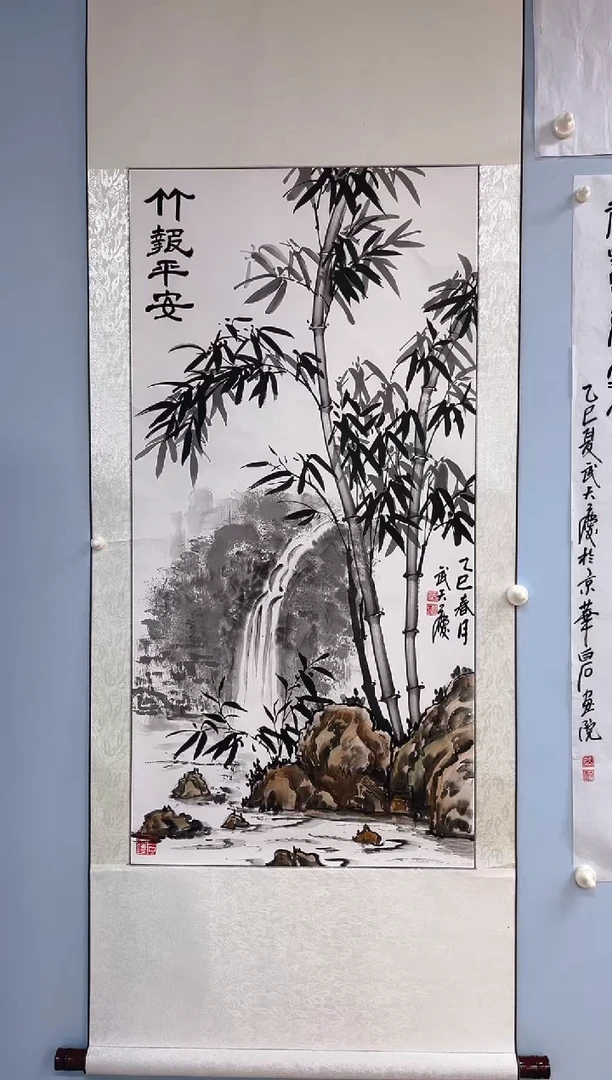 竹報平安
乙巳春月
武大慶
乙巳夏武大慶於京華白石畫院